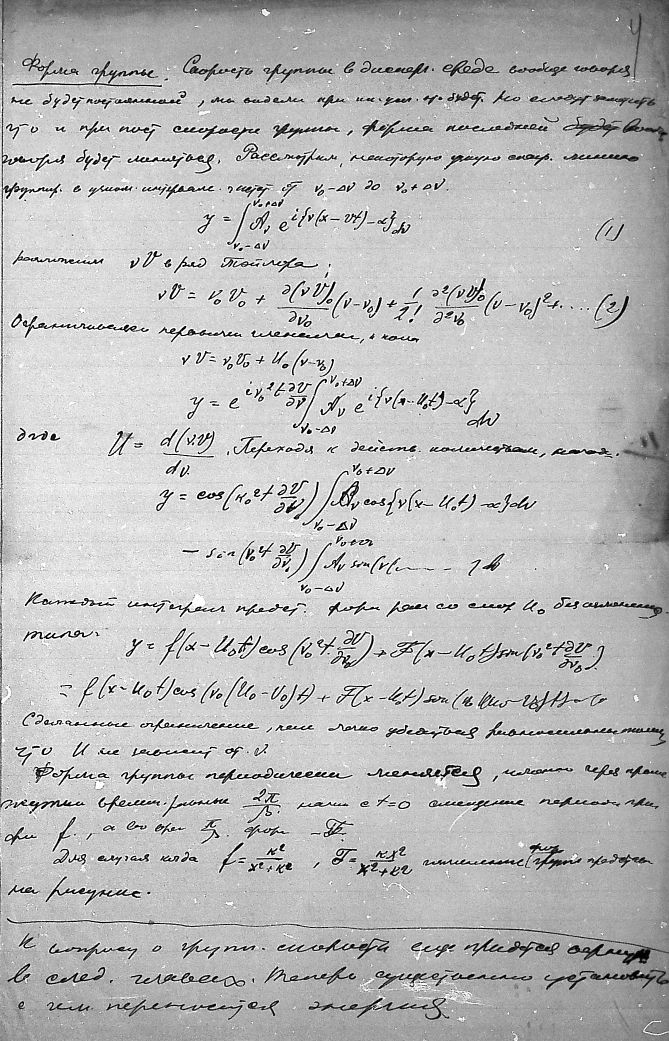 4
Форма группы. Скорость группы в дисперс. среде вообще говоря
не будет постоянной, мы видели при что будет. Но следует
что и при пост скорости группы, форма последней будет
говоря будет меняться. Рассмотрим, некоторую узкую спектр. линию
группир. в узком интервале частот от ν₀-Δν до ν₀+Δν.
y = ∫_{ν₀-Δν}^{ν₀+Δν} A_ν e^{i{ν(x-Vt)-α}} dν (1)
разложим νV в ряд Тэйлора:
νV = ν₀V₀ + ∂(νV)₀/∂ν₀ (ν-ν₀) + 1/2! ∂²(νV)₀/∂²ν₀ (ν-ν₀)² + .... (2)
Ограничиваясь первыми членами,
νV = ν₀V₀ + U₀(ν-ν₀)
y = e^{iν₀²t ∂V/∂ν} ∫_{ν₀-Δν}^{ν₀+Δν} A_ν e^{i{ν(x-U₀t)-α}} dν
где U = d(νV)/dν. Переходя к действ. количествам,
y = cos(ν₀²t ∂V/∂ν) ∫_{ν₀-Δν}^{ν₀+Δν} A_ν cos{ν(x-U₀t)-α}dν
- sin(ν₀²t ∂V/∂ν₀) ∫_{ν₀-Δν}^{ν₀+Δν} A_ν sin{ν(....... } dν
Каждый интеграл предст. со скор U₀ без изменения
типа:
y = f(x-U₀t) cos(ν₀²t ∂V/∂ν₀) + F(x-U₀t) sin(ν₀²t ∂V/∂ν₀)
= f(x-U₀t) cos(ν₀(U₀-V₀)t) + F(x-U₀t) sin(ν₀(U₀-V₀)t)
Сделанные ограничение, как легко убедиться равносильно тому,
что U не зависит от ν.
Форма группы периодически меняется, именно через проме
жутки времени равные 2π/β. t=0 смещение
f, а во врем π/β. форм -F.
Для случая когда f = k²/(x²+k²), F = kx²/(x²+k²) изменение форм группы представ
на рисунке.
К вопросу о групп. скорости еще придется вернуться
в след. главах. Теперь существенно установить
с чем переносится энергия